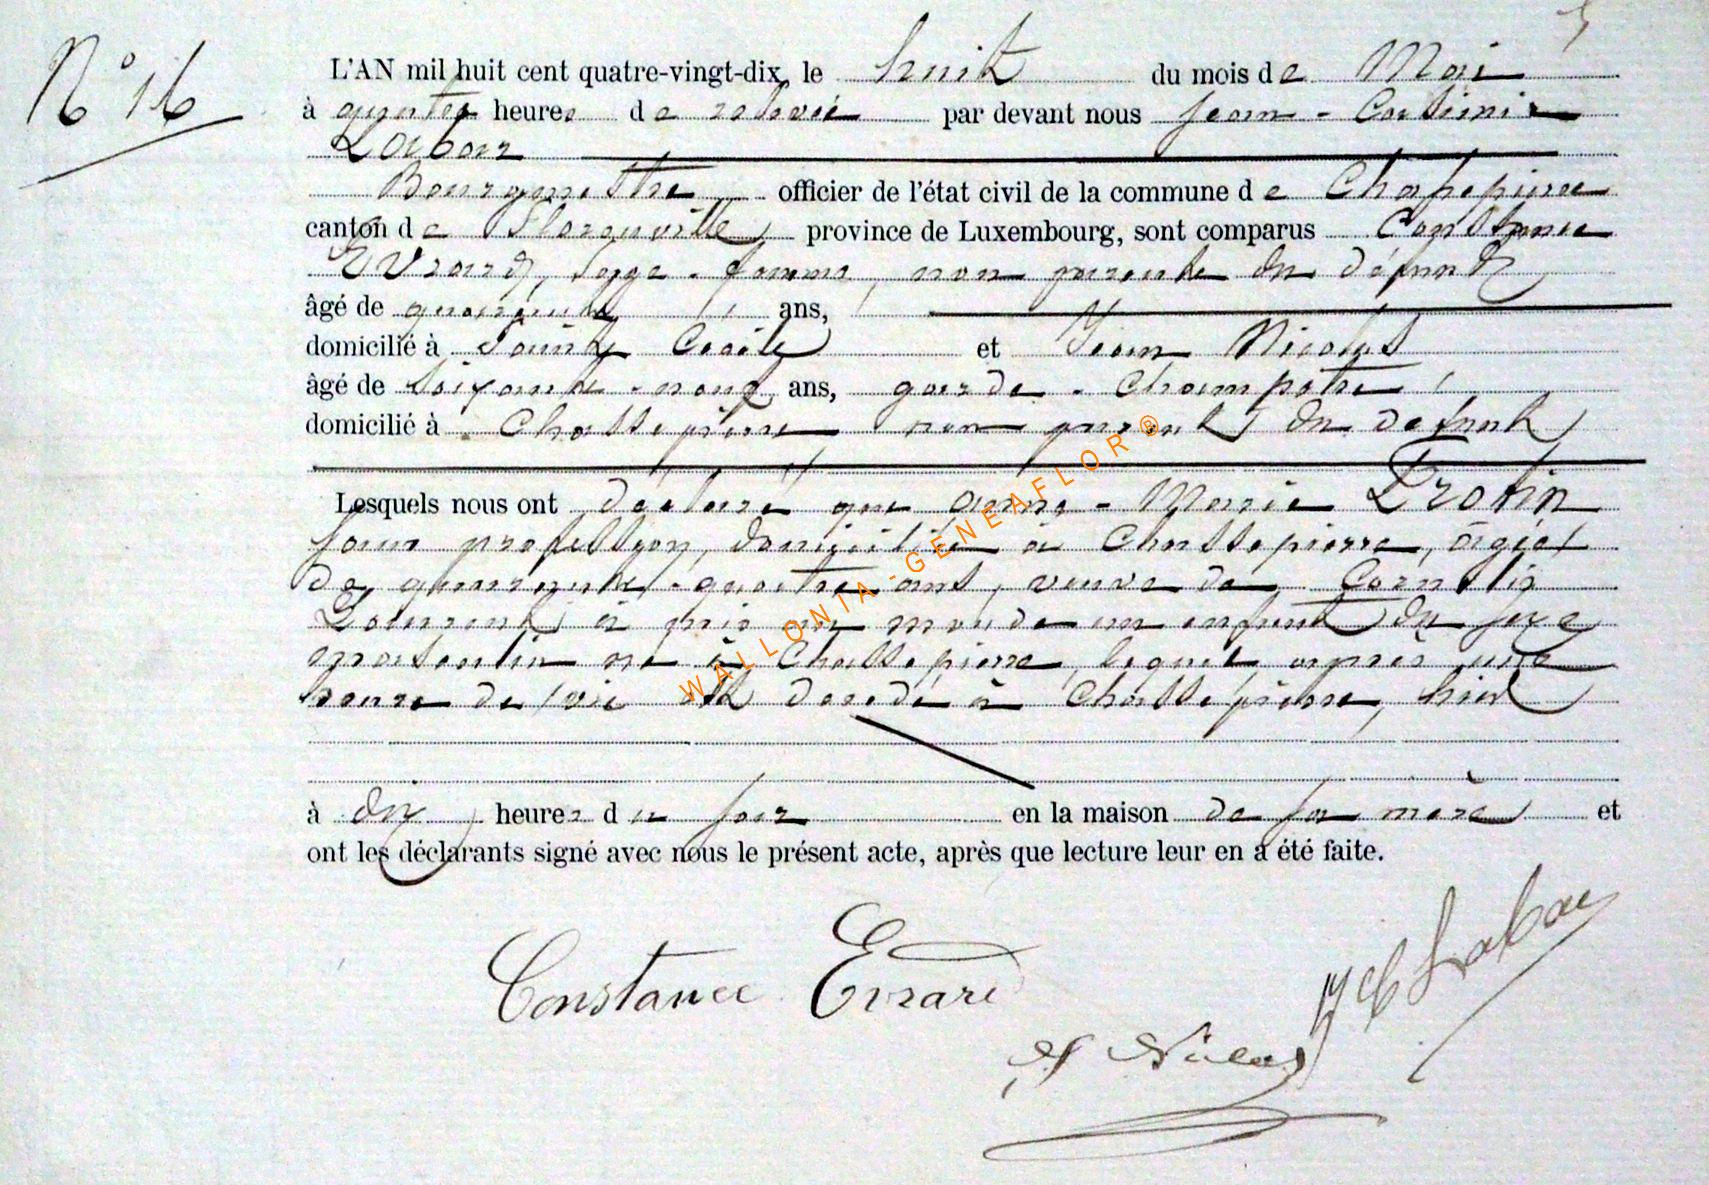 N° 16
L'AN mil huit cent quatre-vingt-dix, le huit du mois de Mai
à quatre heures de relevée par devant nous Jean-Casimir
Labar
Bourgmestre officier de l'état civil de la commune de Chassepierre
canton de Florenville, province de Luxembourg, sont comparus Constance
Evrard, sage-femme, non parente du défunt
âgé de quarante ans,
domicilié à Sainte Cécile et Jean Nicolas
âgé de soixante-neuf ans, garde-champêtre,
domicilié à Chassepierre non parent du défunt
Lesquels nous ont déclaré que Anne-Marie
sans profession, domiciliée à Chassepierre, âgée
de quarante-quatre ans, veuve de
Laurent à mis au monde un enfant du sexe
masculin né à Chassepierre, lequel après une
heure de vie est décédé à Chassepierre, hier
à dix heures du soir en la maison de sa mère et
ont les déclarants signé avec nous le présent acte, après que lecture leur en a été faite.
Constance Evrard
J Nicolas
J C Labar
WALLONIA-GENEAFLOR®